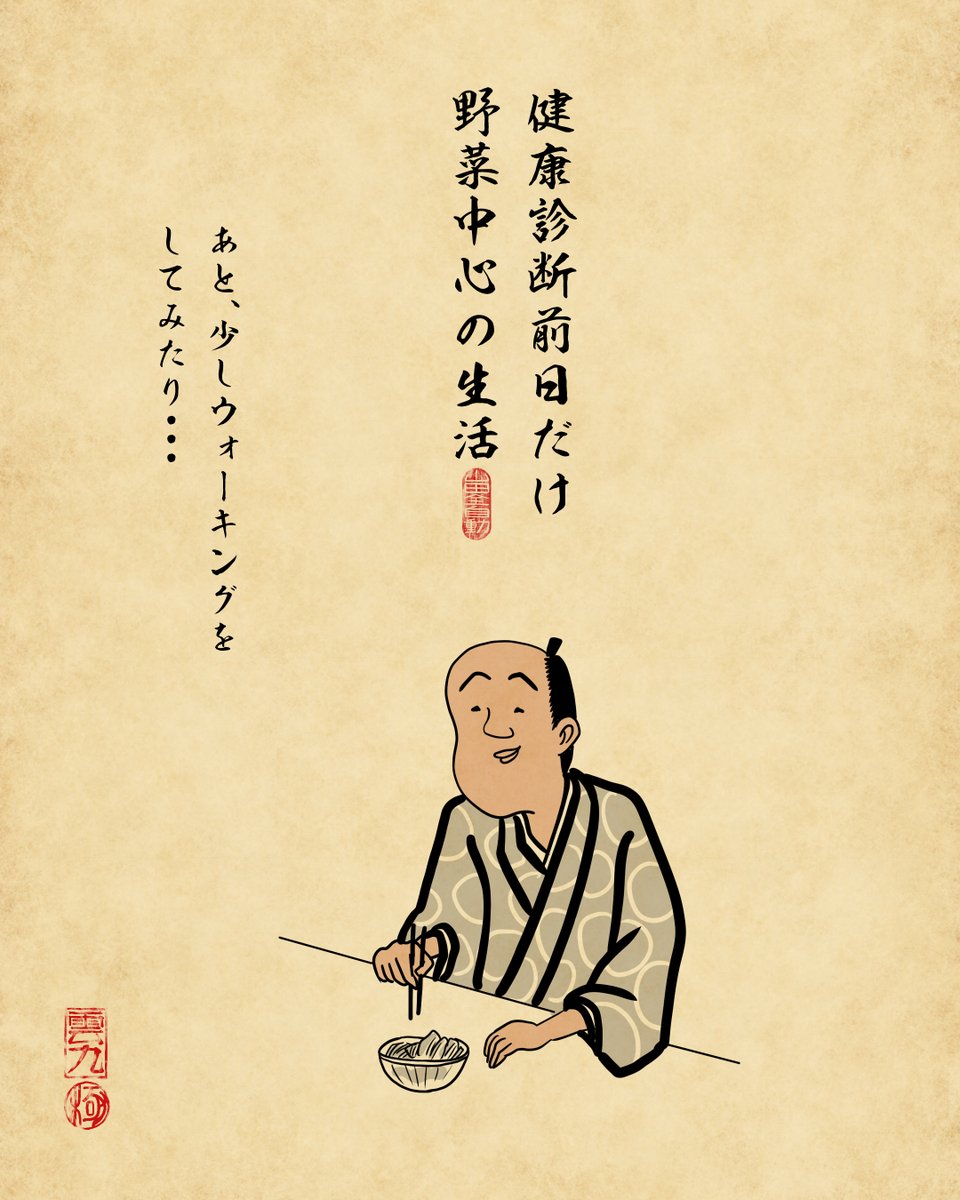 健康診断前日だけ
野菜中心の生活
あと、少しウォーキングを
してみたり・・・